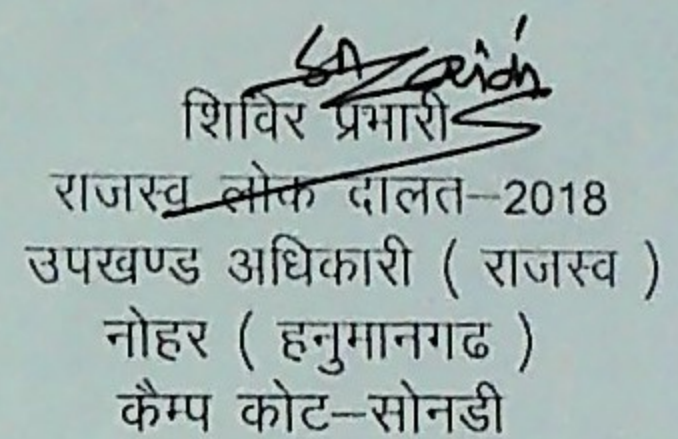 शिविर प्रभारी
राजस्व लोक दालत–2018
उपखण्ड अधिकारी ( राजस्व )
नोहर ( हनुमानगढ )
कैम्प कोट–सोनडी